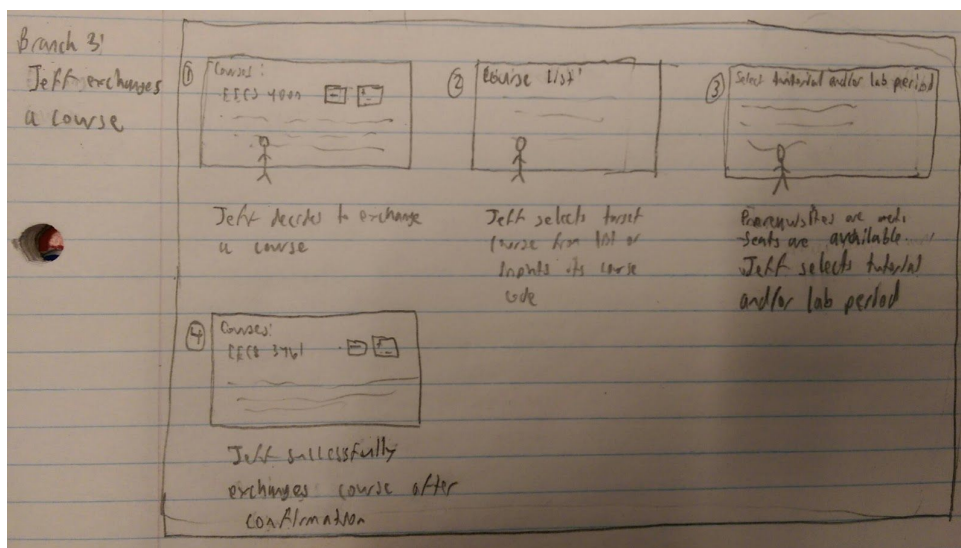 Branch 3:
Jeff exchanges
a course
①
Courses:
EECS 4080
Jeff decides to exchange
a course
②
Course List:
Jeff selects target
course from list or
Inputs its course
code
③
Select tutorial and/or lab period
Prerequisites are met.
Seats are available
Jeff selects tutorial
and/or lab period
④
Courses:
EECS 3461
Jeff successfully
exchanges course after
confirmation